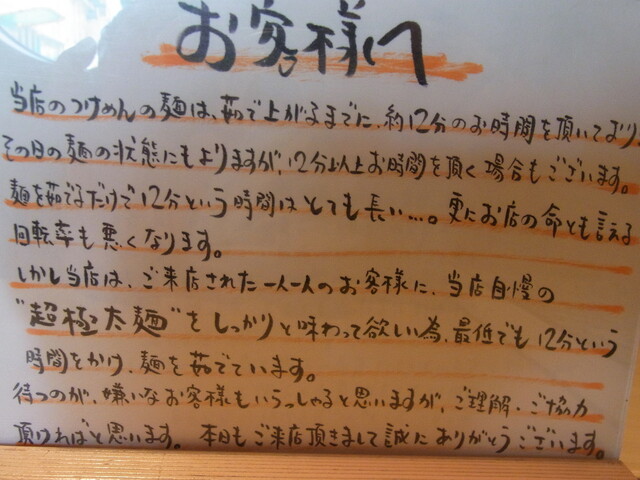 お客様へ
当店のつけめんの麺は、茹で上がるまでに、約12分のお時間を頂いており、
その日の麺の状態にもよりますが、12分以上お時間を頂く場合もございます。
麺を茹でるだけで12分という時間はとても長い…。更にお店の命とも言える
回転率も悪くなります。
しかし当店は、ご来店された一人一人のお客様に、当店自慢の
"超極太麺"をしっかりと味わって欲しい為、最低でも12分という
時間をかけ、麺を茹でています。
待つのが、嫌いなお客様もいらっしゃると思いますが、ご理解・ご協力
頂ければと思います。本日もご来店頂きまして誠にありがとうございます。